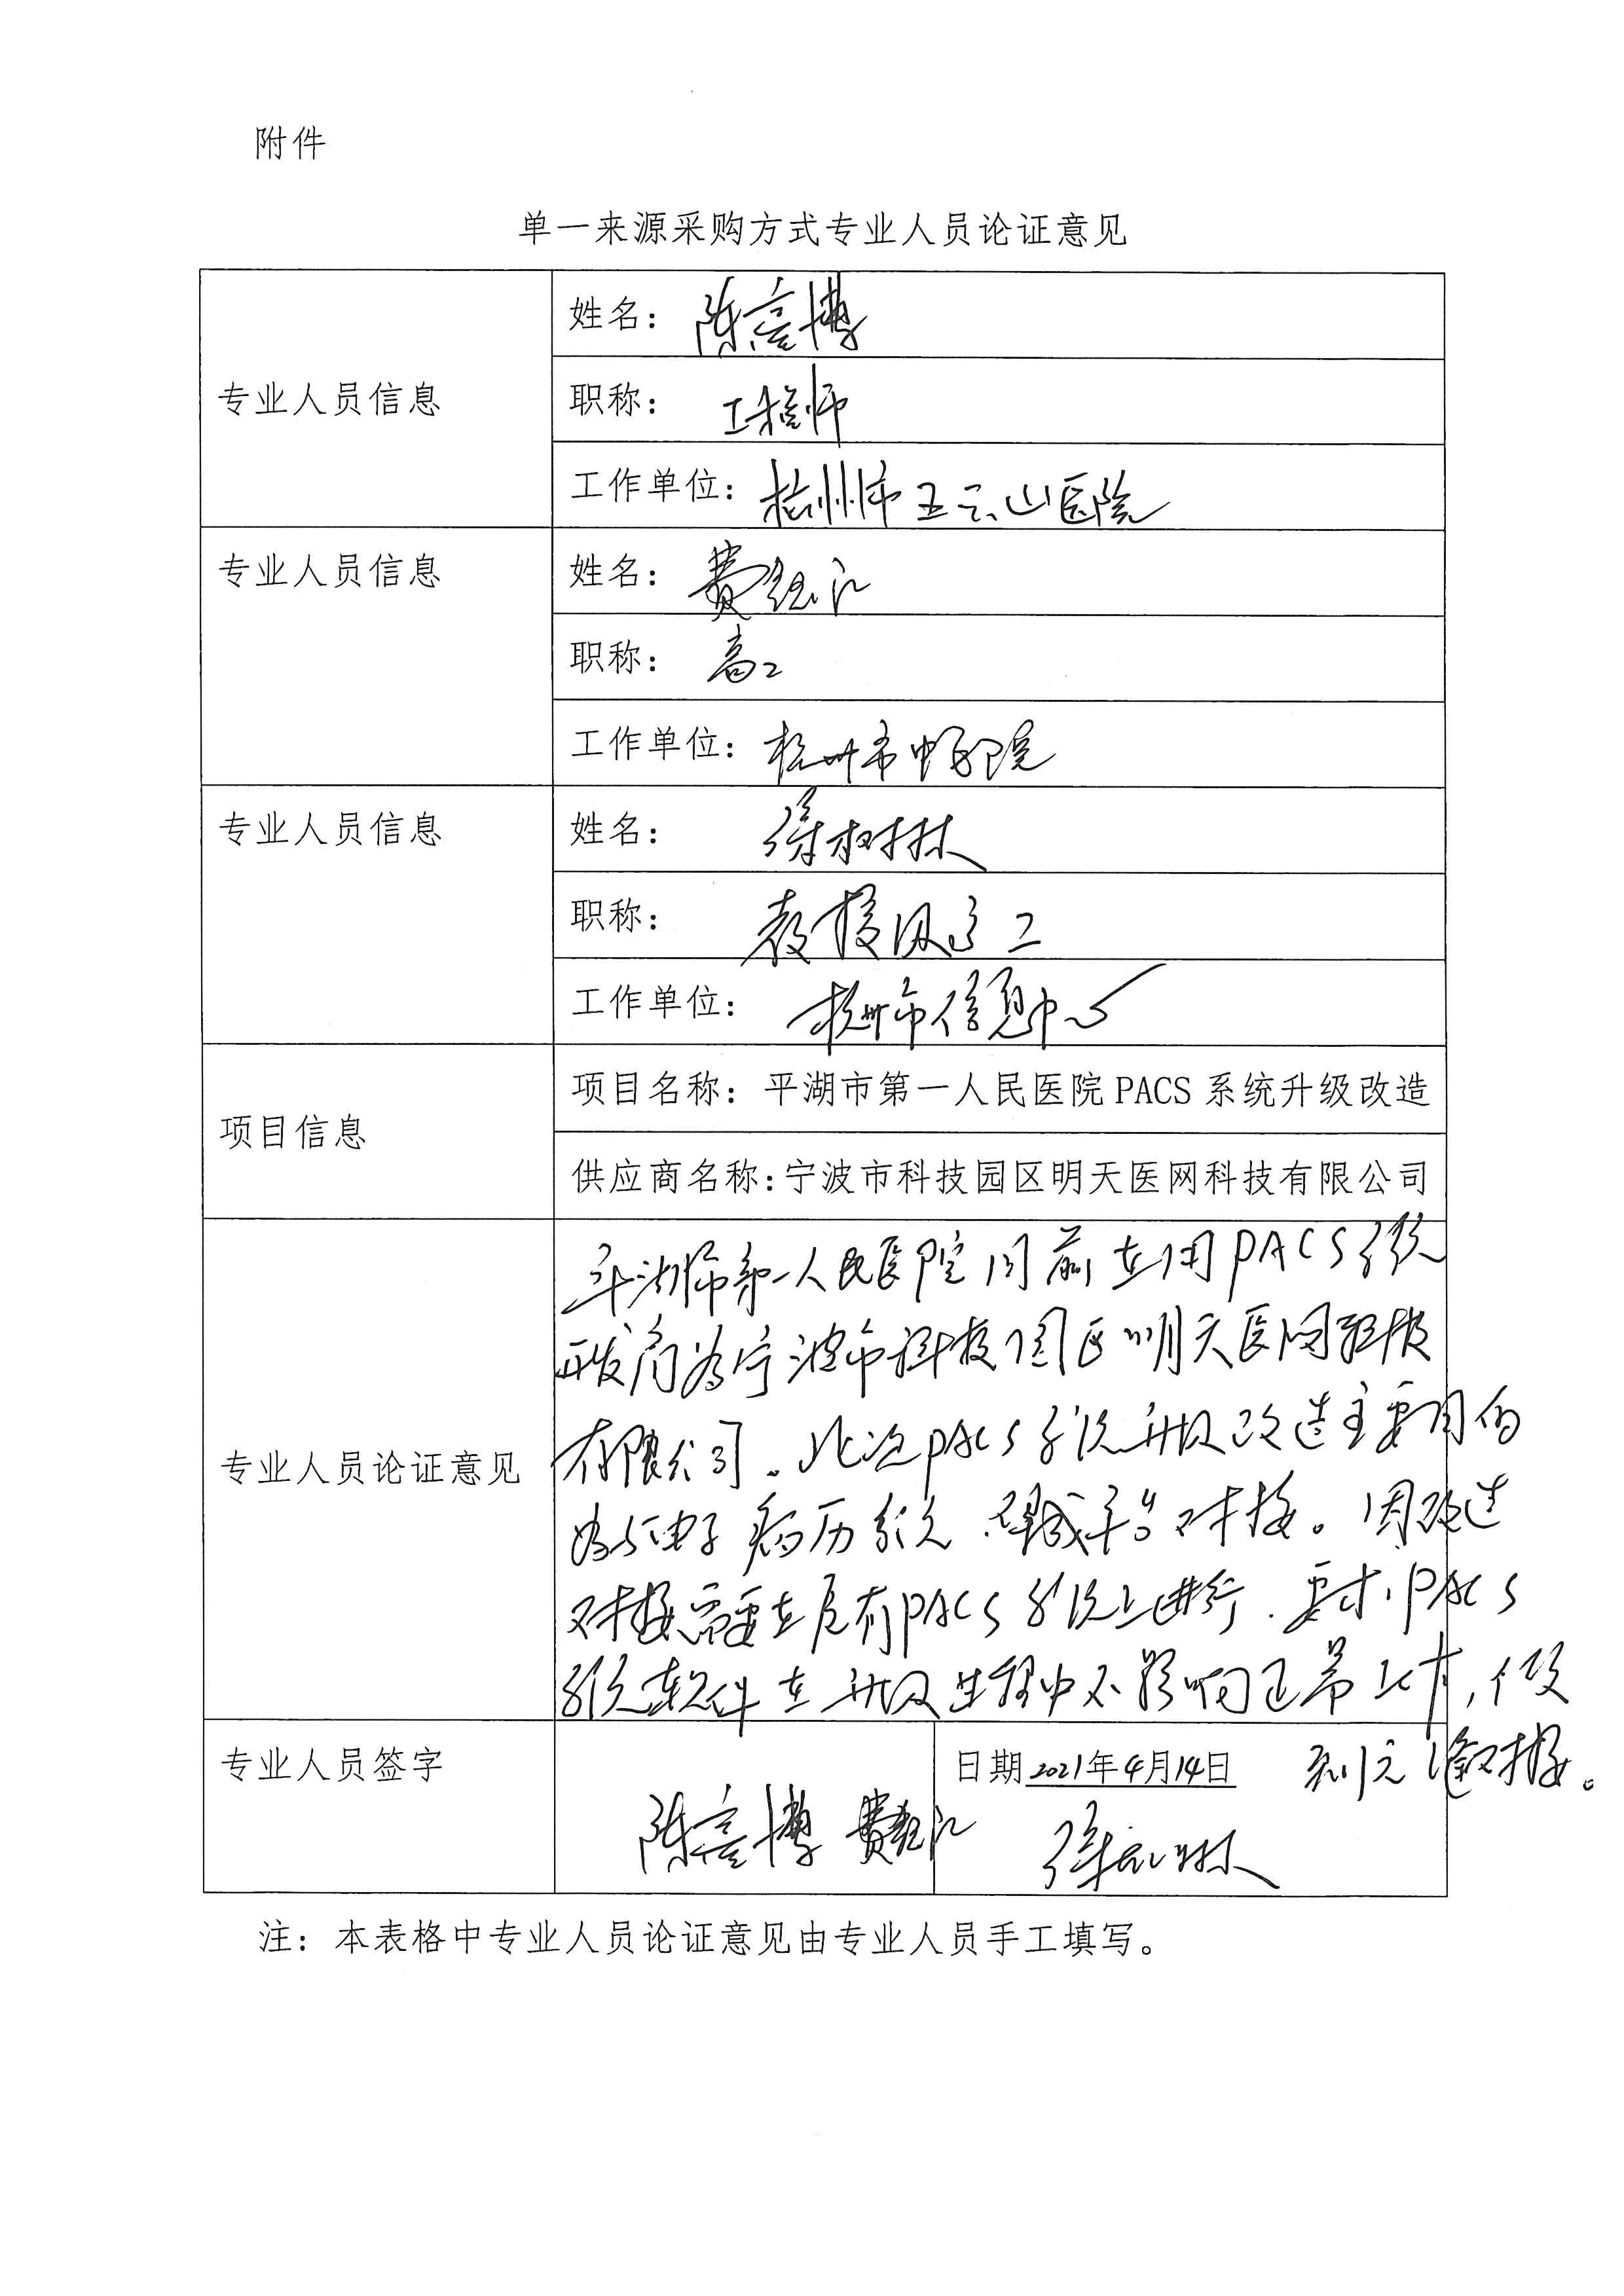 附件
单一来源采购方式专业人员论证意见
专业人员信息
姓名：陈
职称：工程师
工作单位：杭州市五云山医院
专业人员信息
姓名：费
职称：高工
工作单位：杭州市中医院
专业人员信息
姓名：徐树林
职称：教授级高工
工作单位：杭州市信息中心
项目信息
项目名称：平湖市第一人民医院 PACS 系统升级改造
供应商名称：宁波市科技园区明天医网科技有限公司
专业人员论证意见
平湖市第一人民医院目前在用PACS系统
开发商为宁波市科技园区明天医网科技
有限公司。此次PACS系统升级改造主要目的
为与电子病历系统、平台对接。因改造
对接需要在原有PACS系统上进行，要求PACS
系统软件在升级过程中不影响正常工作，
对接。
专业人员签字
日期 2021年4月14日
陈 费
徐树林
注：本表格中专业人员论证意见由专业人员手工填写。